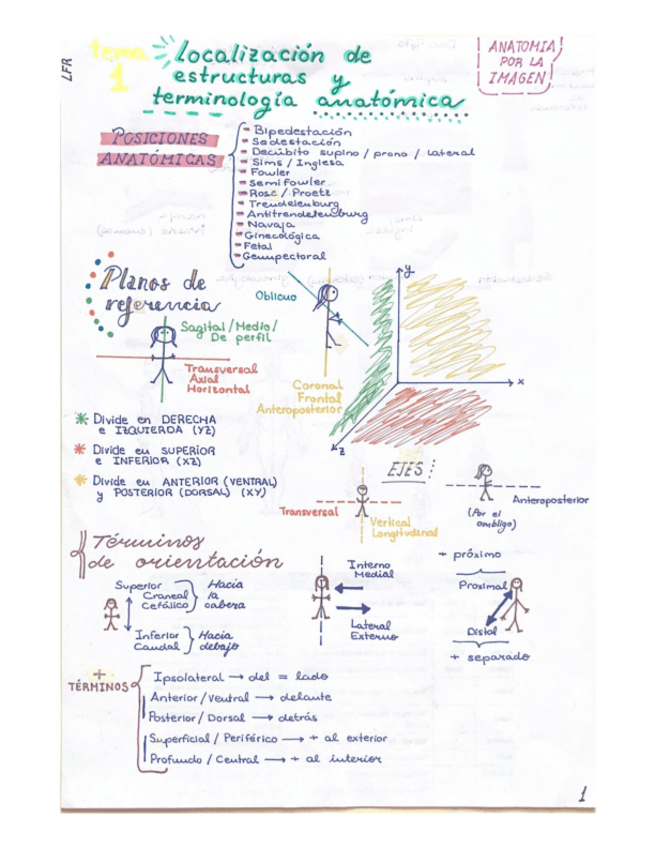 LFR
tema 1
Localización de
estructuras y
terminología anatómica
ANATOMIA
POR LA
IMAGEN
POSICIONES
ANATÓMICAS
Bipedestación
Sedestación
Decúbito supino / prono / lateral
Sims / Inglesa
Fowler
Semifowler
Rose / Proetz
Trendelenburg
Antitrendelenburg
Navaja
Ginecológica
Fetal
Genupectoral
Planos de
referencia
Sagital / Medio /
De perfil
Transversal
Axial
Horizontal
Oblicuo
Coronal
Frontal
Anteroposterior
y
x
z
* Divide en DERECHA
e IZQUIERDA (YZ)
* Divide en SUPERIOR
e INFERIOR (XZ)
* Divide en ANTERIOR (VENTRAL)
y POSTERIOR (DORSAL) (XY)
EJES:
Transversal
Vertical
Longitudinal
Anteroposterior
(Por el
ombligo)
Términos
de orientación
Superior
Craneal
Cefálico
Hacia
la
cabeza
Inferior
Caudal
Hacia
debajo
Interno
Medial
Lateral
Externo
+ próximo
Proximal
Distal
+ separado
+
TÉRMINOS
Ipsolateral → del = lado
Anterior / Ventral → delante
Posterior / Dorsal → detrás
Superficial / Periférico → + al exterior
Profundo / Central → + al interior
1